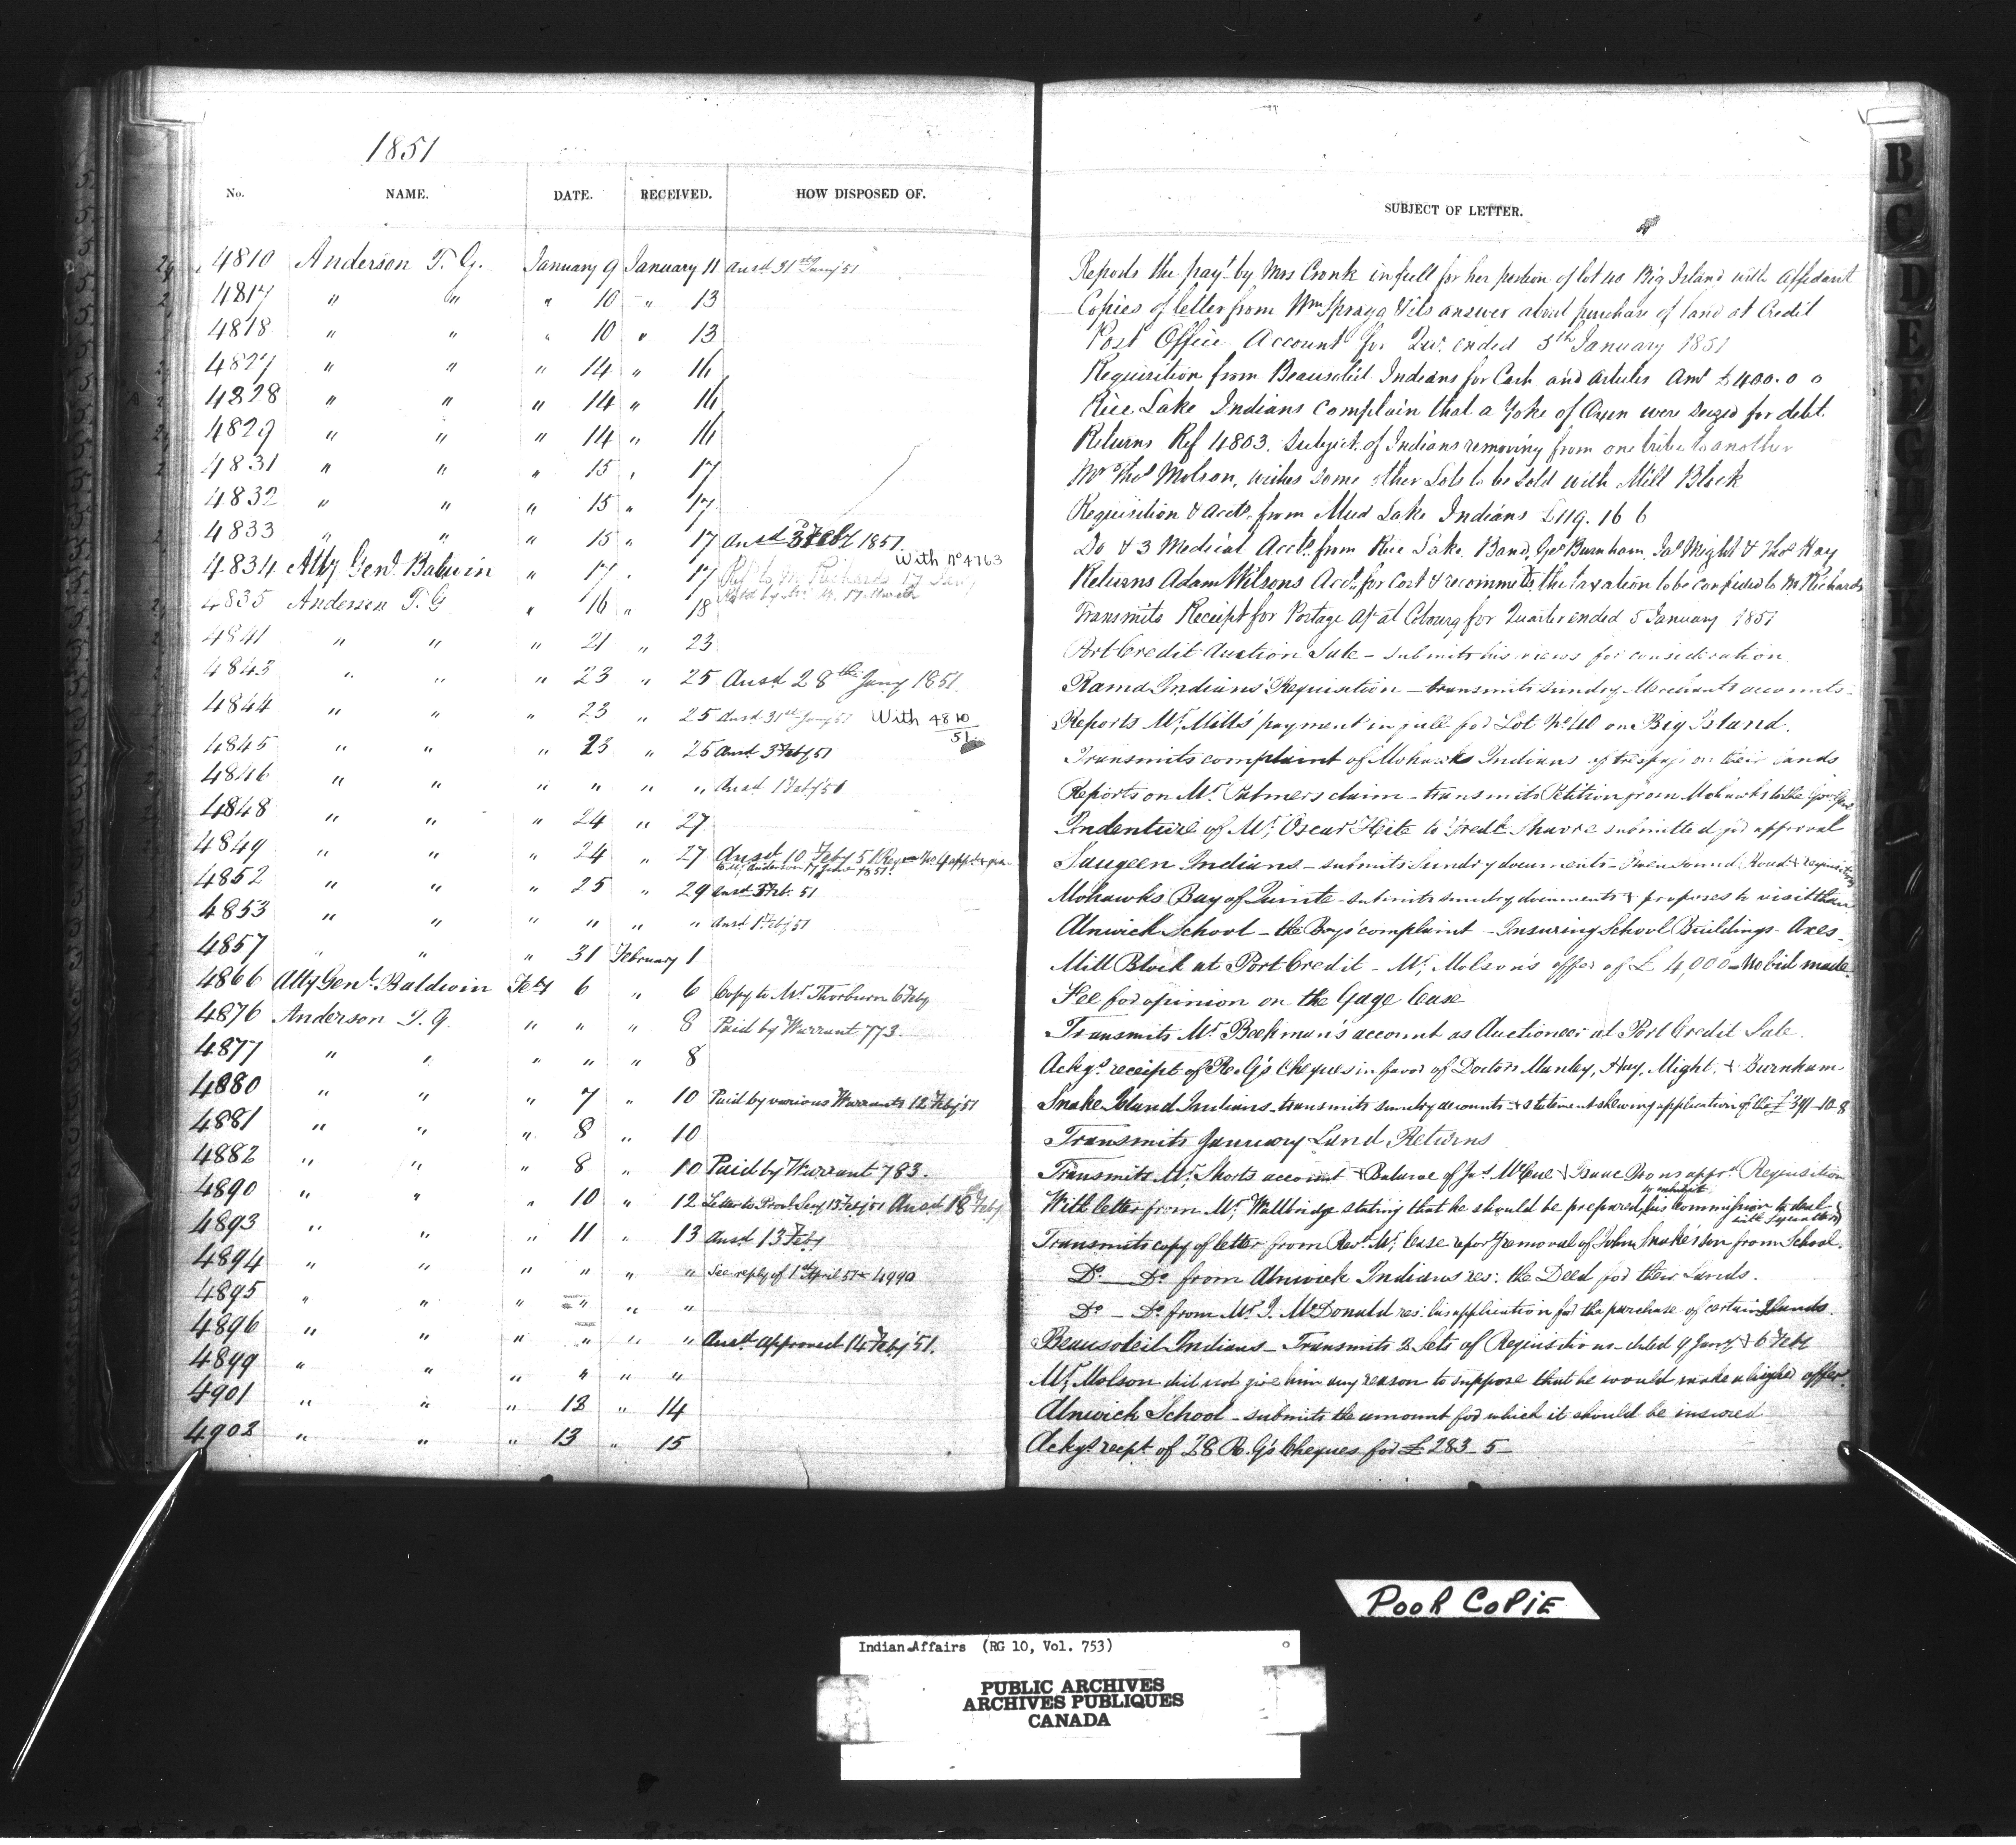 1851
No. NAME. DATE. RECEIVED. HOW DISPOSED OF. SUBJECT OF LETTER.
4810 Anderson T. G. January 9 January 11 Ansd 31st Jany 51 Reports the payt by Mrs Cronk in full for her portion of lot 40 Big Island with Affidavit
4817 " " " 10 " 13 Copies of letter from Wm Spragg & its answer about purchase of land at Credit
4818 " " " 10 " 13 Post Office Account for Qur. ended 5th January 1851
4827 " " " 14 " 16 Requisition from Beausoleil Indians for Cash and articles Amt £400. 0 0
4828 " " " 14 " 16 Rice Lake Indians complain that a Yoke of Oxen were seized for debt
4829 " " " 14 " 16 Returns Ref 4803. Subject of Indians removing from one tribe to another
4831 " " " 15 " 17 Mr Thos Molson, wishes some other Lots to be sold with Mill Block
4832 " " " 15 " 17 Requisition & Accts. from Mud Lake Indians £119. 16 6
4833 " " " 15 " 17 Ansd 3 Feby 1851 Do & 3 Medical Accts. from Rice Lake Band, Geo Burnham, Jas Might & Thos Hay
4834 Atty Genl. Baldwin " 17 " 17 Refd to Mr Richards 17 Jany With No 4763 Returns Adam Wilsons Acct. for Cost & recommds the taxation to be confided to Mr Richards
4835 Anderson T. G " 16 " 18 Transmits Receipt for Postage a/c at Cobourg for Quarter ended 5 January 1851
4841 " " " 21 " 23 Port Credit Auction Sale - submits his views for consideration
4843 " " " 23 " 25 Ansd 28th Jany 1851. Rama Indians' Requisition - transmits sundry Merchants accounts -
4844 " " " 23 " 25 Ansd 31st Jany 51 With 4810/51. Reports Mr. Mills' payment in full for Lot No. 40 on Big Island.
4845 " " " 23 " 25 Ansd. 3 Feby 51 Transmits complaint of Mohawks Indians of trespass on their lands
4846 " " " " " " Ansd 1 Feby 51 Reports on Mr. Palmers claim - transmits Petition from Mohawks to the Govr Genl
4848 " " " 24 " 27 Indenture of Mr. Oscar Heite to submitted for approval
4849 " " " 24 " 27 Ansd. 10 Feby 51 Saugeen Indians - submits sundry documents - Owen Sound Road & requisition
4852 " " " 25 " 29 Ansd 3 Feb. 51 Mohawks Bay of Quinte - submits sundry documents & proposes to visit them
4853 " " " " " " Ansd. 1st Feby 51 Alnwick School - the Boys' complaint - Insuring School Buildings - Axes -
4857 " " " 31 February 1 Mill Block at Port Credit - Mr. Molson's offer of £ 4,000 - No bid made.
4866 Atty Genl. Baldwin Feby 6 " 6 Copy to Mr. Thorburn 6 Feby Fee for opinion on the Gage lease
4876 Anderson T. G. " " " 8 Paid by Warrant 773. Transmits Mr. Beekman's account as Auctioneer at Port Credit Sale.
4877 " " " " " 8 Ackgs. receipt of R. G's Cheques in favor of Doctors Manley, Hay, Might, & Burnham
4880 " " " 7 " 10 Paid by various Warrants 12 Feby 51 Snake Island Indians - transmits sundry accounts & statement shewing application of the £ 391 - 10 - 8
4881 " " " 8 " 10 Transmits January Land Returns
4882 " " " 8 " 10 Paid by Warrant 783. Transmits Mr. Shorts account & Balance of Jas McCue & Isaac appr. Requisition
4890 " " " 10 " 12 Letter to Provl. Secy 13 Feby 51 Ansd. 18 Feby With letter from Mr. Wallbridge stating that he should be prepared to exhibit his Commission to deal with Squatters
4893 " " " 11 " 13 Ansd. 13 Feby Transmits copy of letter from Revd. Mr. Case report removal of John Snake's son from School.
4894 " " " " " " See reply of 1st April 51 - 4990 Do. - Do. from Alnwick Indians res: the Deed for their Lands.
4895 " " " " " " Do - Do. from Mr. J. McDonald res: his application for the purchase of certain Islands.
4896 " " " " " " Ansd. approved 14 Feby 51. Beausoleil Indians - Transmits 2 sets of Requisitions - dated 9 Jany & 6 Feby
4899 " " " " " " Mr. Molson did not give him any reason to suppose that he would make a higher offer.
4901 " " " 13 " 14 Alnwick School - submits the amount for which it should be insured
4902 " " " 13 " 15 Ackgs recpt of 28 R. G's Cheques for £ 283 - 5 -
B
C
D
E
POOR COPIE
Indian Affairs (RG 10, Vol. 753)
PUBLIC ARCHIVES
ARCHIVES PUBLIQUES
CANADA